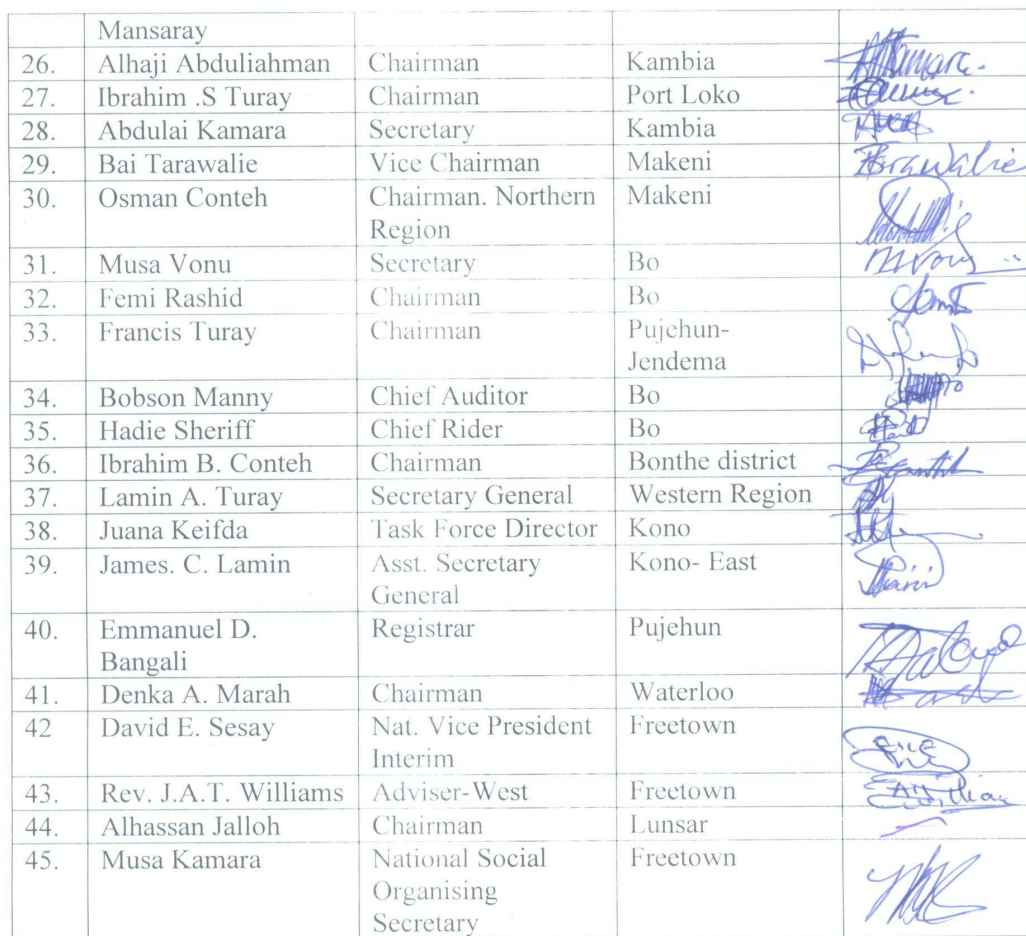 Mansaray
26. Alhaji Abduliahman Chairman Kambia
27. Ibrahim .S Turay Chairman Port Loko
28. Abdulai Kamara Secretary Kambia
29. Bai Tarawalie Vice Chairman Makeni
30. Osman Conteh Chairman. Northern Makeni
Region
31. Musa Vonu Secretary Bo
32. Femi Rashid Chairman Bo
33. Francis Turay Chairman Pujehun-
Jendema
34. Bobson Manny Chief Auditor Bo
35. Hadie Sheriff Chief Rider Bo
36. Ibrahim B. Conteh Chairman Bonthe district
37. Lamin A. Turay Secretary General Western Region
38. Juana Keifda Task Force Director Kono
39. James. C. Lamin Asst. Secretary Kono- East
General
40. Emmanuel D. Registrar Pujehun
Bangali
41. Denka A. Marah Chairman Waterloo
42 David E. Sesay Nat. Vice President Freetown
Interim
43. Rev. J.A.T. Williams Adviser-West Freetown
44. Alhassan Jalloh Chairman Lunsar
45. Musa Kamara National Social Freetown
Organising
Secretary